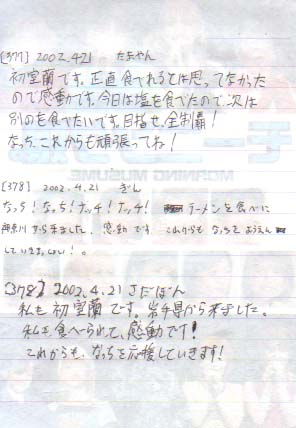 [377] 2002.4.21 たまやん
初室蘭です。正直食べれるとは思ってなかった
ので感動です。今日は塩を食べたので、次は
別のを食べたいです。目指せ、全制覇!
なっち、これからも頑張ってね!
[378] 2002.4.21 ぎん
なっち!なっち!ナッチ!ナッチ! ラーメンを食べに
から来ました。感動です これからもなっちを
していきましょい!。
[378] 2002.4.21 さだぽん
私も初室蘭です。岩手県から来ました。
私も食べられて、感動です!
これからも、なっちを応援していきます!
MORNING MUSUME